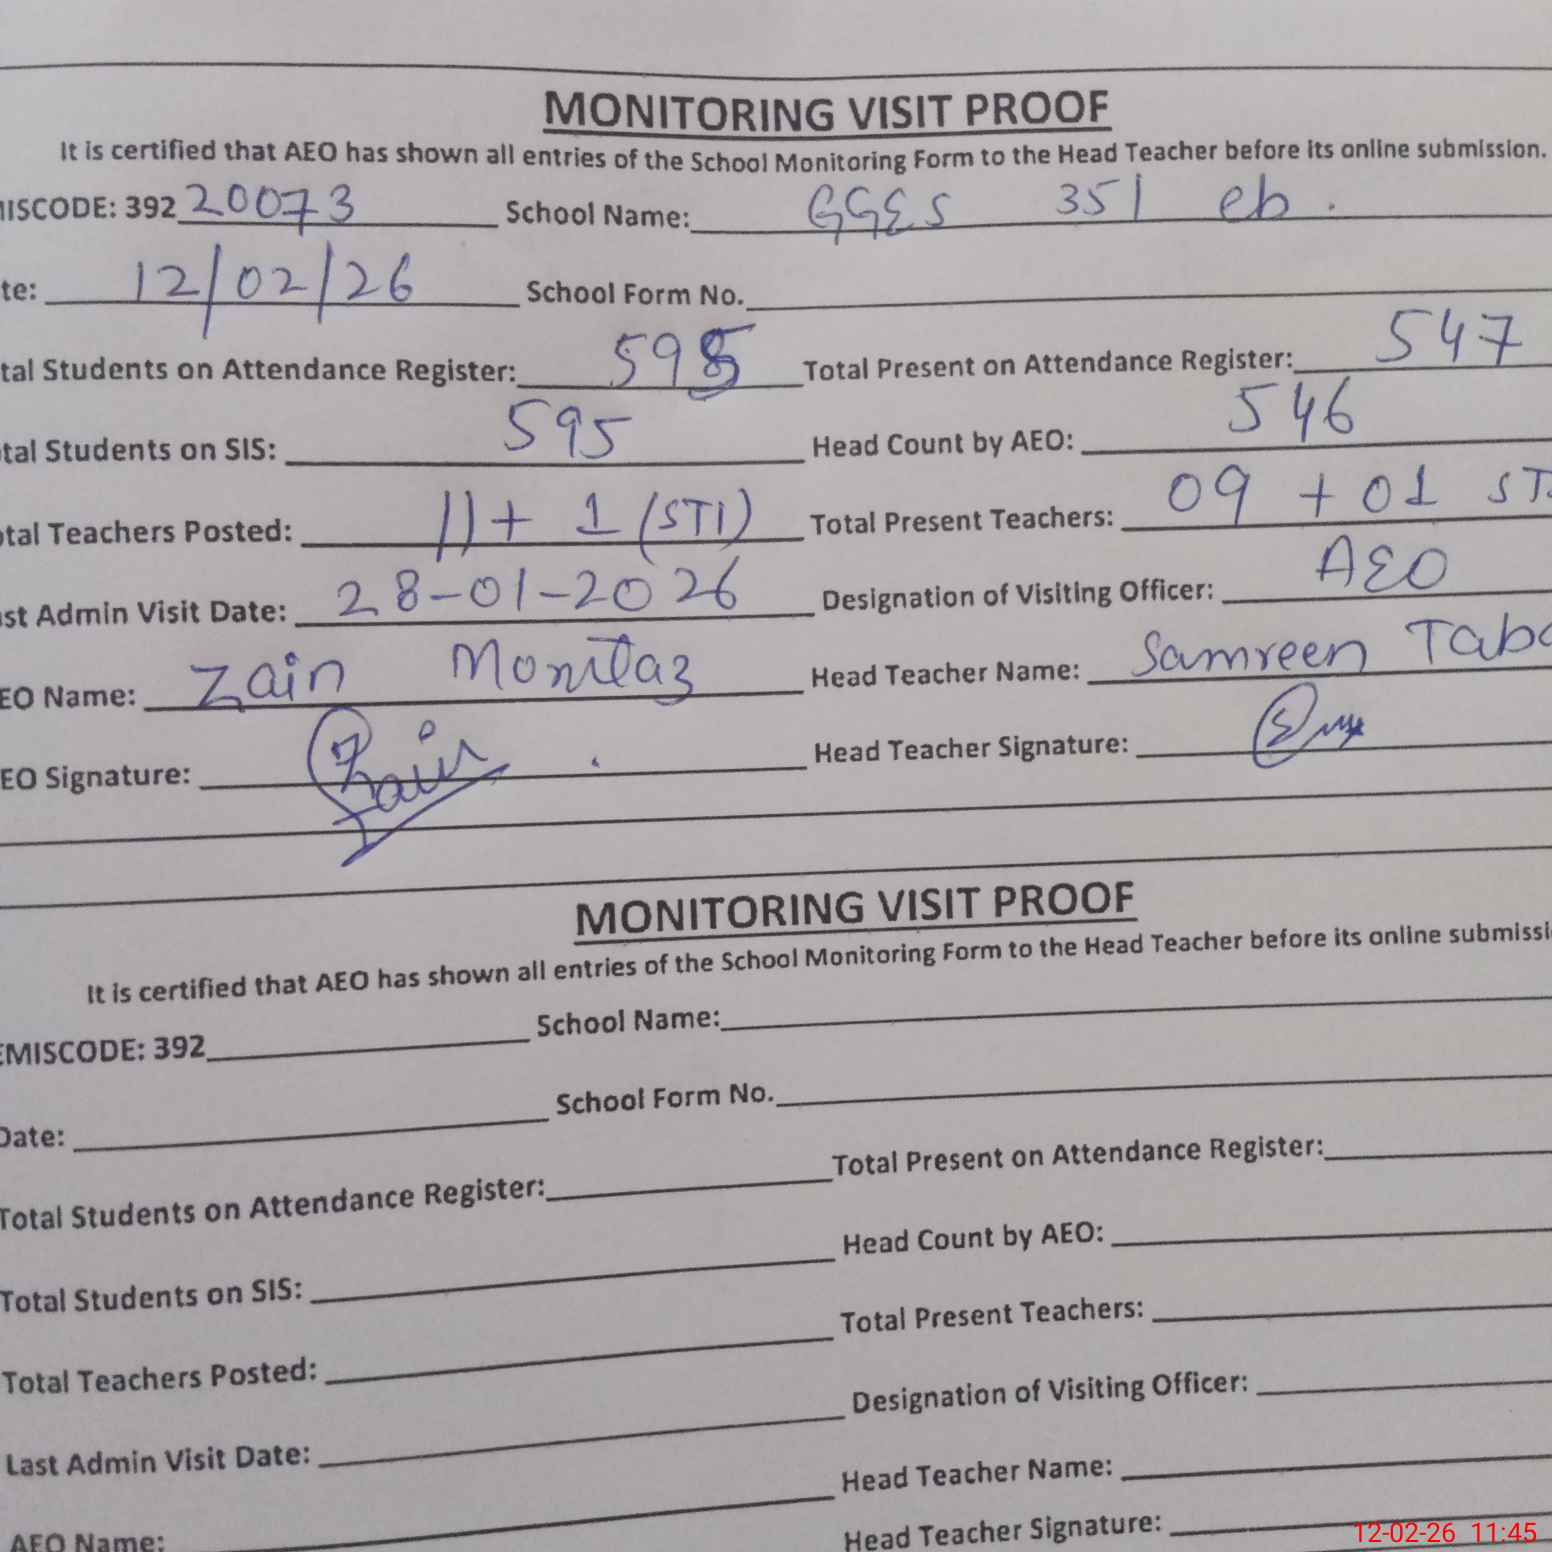 MONITORING VISIT PROOF
It is certified that AEO has shown all entries of the School Monitoring Form to the Head Teacher before its online submission.
MISCODE: 392 20073 School Name: GGES 351 eb.
te: 12/02/26 School Form No.
tal Students on Attendance Register: 595 Total Present on Attendance Register: 547
tal Students on SIS: 595 Head Count by AEO: 546
otal Teachers Posted: 11+ 1 (STI) Total Present Teachers: 09 + 01 ST
st Admin Visit Date: 28-01-2026 Designation of Visiting Officer: AEO
EO Name: Zain Momtaz Head Teacher Name: Samreen Taba
EO Signature: Zain Head Teacher Signature:
MONITORING VISIT PROOF
It is certified that AEO has shown all entries of the School Monitoring Form to the Head Teacher before its online submissi
EMISCODE: 392 School Name:
Date: School Form No.
Total Students on Attendance Register: Total Present on Attendance Register:
Total Students on SIS: Head Count by AEO:
Total Teachers Posted: Total Present Teachers:
Last Admin Visit Date: Designation of Visiting Officer:
AEO Name: Head Teacher Name:
Head Teacher Signature:
12-02-26 11:45